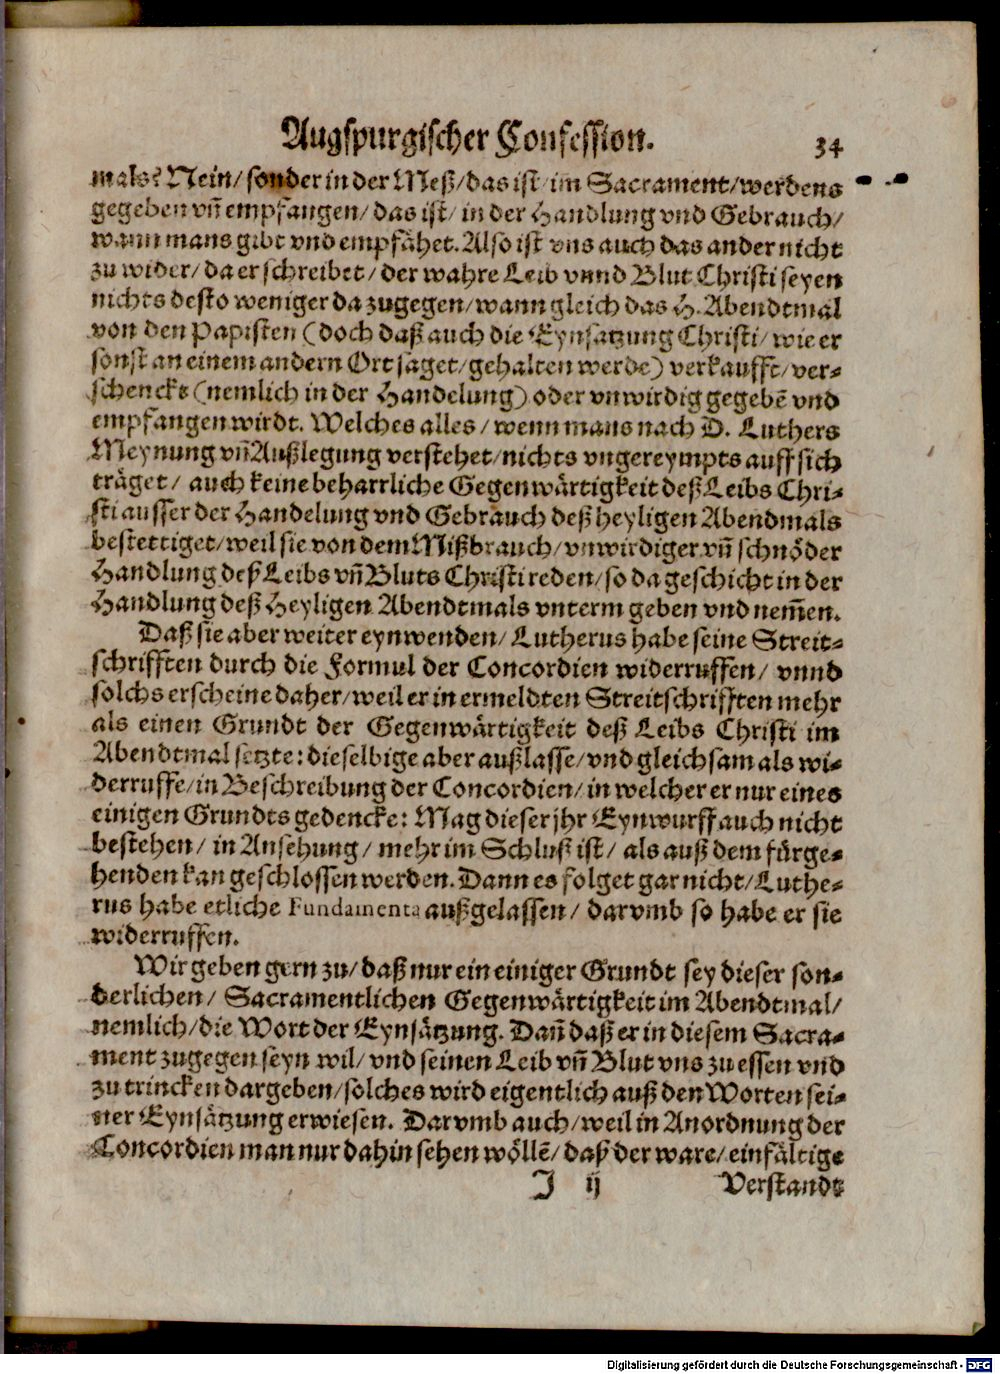 Augspurgischer Confession. 34
mals? Nein/ sonder in der Meß/ das ist/ im Sacrament/ werdens
gegeben vñ empfangen/ das ist/ in der Handlung vnd Gebrauch/
wann mans gibt vnd empfähet. Also ist vns auch das ander nicht
zu wider/ da er schreibet/ der wahre Leib vnnd Blut Christi seyen
nichts desto weniger da zugegen/ wann gleich das H. Abendtmal
von den Papisten (doch daß auch die Eynsatzung Christi/ wie er
sonst an einem andern Ort saget/ gehalten werde) verkaufft/ ver-
schenckt (nemlich in der Handelung) oder vnwirdig gegebẽ vnd
empfangen wirdt. Welches alles/ wenn mans nach D. Luthers
Meynung vñ Außlegung verstehet/ nichts vngereympts auff sich
träget/ auch keine beharrliche Gegenwärtigkeit deß Leibs Chri-
sti ausser der Handelung vnd Gebrauch deß heyligen Abendmals
bestettiget/ weil sie von dem Mißbrauch/ vnwirdiger vñ schnöder
Handlung deß Leibs vñ Bluts Christi reden/ so da geschicht in der
Handlung deß Heyligen Abendtmals vnterm geben vnd nem̃en.
Daß sie aber weiter eynwenden/ Lutherus habe seine Streit-
schrifften durch die Formul der Concordien widerruffen/ vnnd
solchs erscheine daher/ weil er in ermeldten Streitschrifften mehr
als einen Grundt der Gegenwärtigkeit deß Leibs Christi im
Abendtmal setzte: dieselbige aber außlasse/ vnd gleichsam als wi-
derruffe/ in Beschreibung der Concordien/ in welcher er nur eines
einigen Grundts gedencke: Mag dieser jhr Eynwurff auch nicht
bestehen/ in Ansehung/ mehr im Schluß ist/ als auß dem fürge-
henden kan geschlossen werden. Dann es folget gar nicht/ Luthe-
rus habe etliche Fundamenta außgelassen/ darvmb so habe er sie
widerruffen.
Wir geben gern zu/ daß nur ein einiger Grundt sey dieser son-
derlichen/ Sacramentlichen Gegenwärtigkeit im Abendtmal/
nemlich/ die Wort der Eynsätzung. Dañ daß er in diesem Sacra-
ment zugegen seyn wil/ vnd seinen Leib vñ Blut vns zu essen vnd
zu trincken dargeben/ solches wird eigentlich auß den Worten sei-
ner Eynsätzung erwiesen. Darvmb auch/ weil in Anordnung der
Concordien man nur dahin sehen wöllẽ/ daß der ware/ einfältige
J ij Verstandt
Digitalisierung gefördert durch die Deutsche Forschungsgemeinschaft - DFG